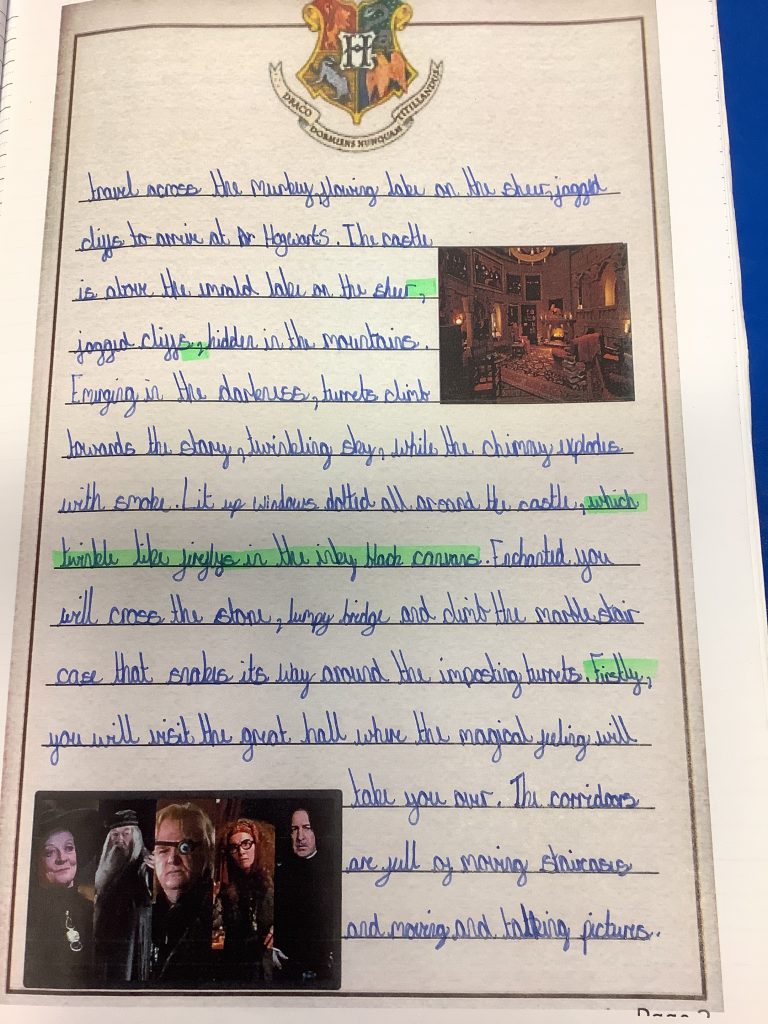 H
DRACO DORMIENS NUNQUAM TITILLANDUS
travel across the murkey, flowing lake on the sheer, jagged
cliffs to arrive at Hogwarts. The castle
is above the emrald lake on the sheer,
jagged cliffs, hidden in the mountains.
Emurging in the darkness, turrets climb
towards the stary, twinkling sky, while the chimney explodes
with smoke. Lit up windows dotted all around the castle, which
twinkle like fireflys in the inky black canvans. Enchanted you
will cross the stone, lumpy bridge and climb the marble stair
case that snakes its way around the imposting turrets. Firstly,
you will visit the great hall where the magical feeling will
take you over. The corridoors
are full of moving staircases
and moving and talking pictures.
Page 2